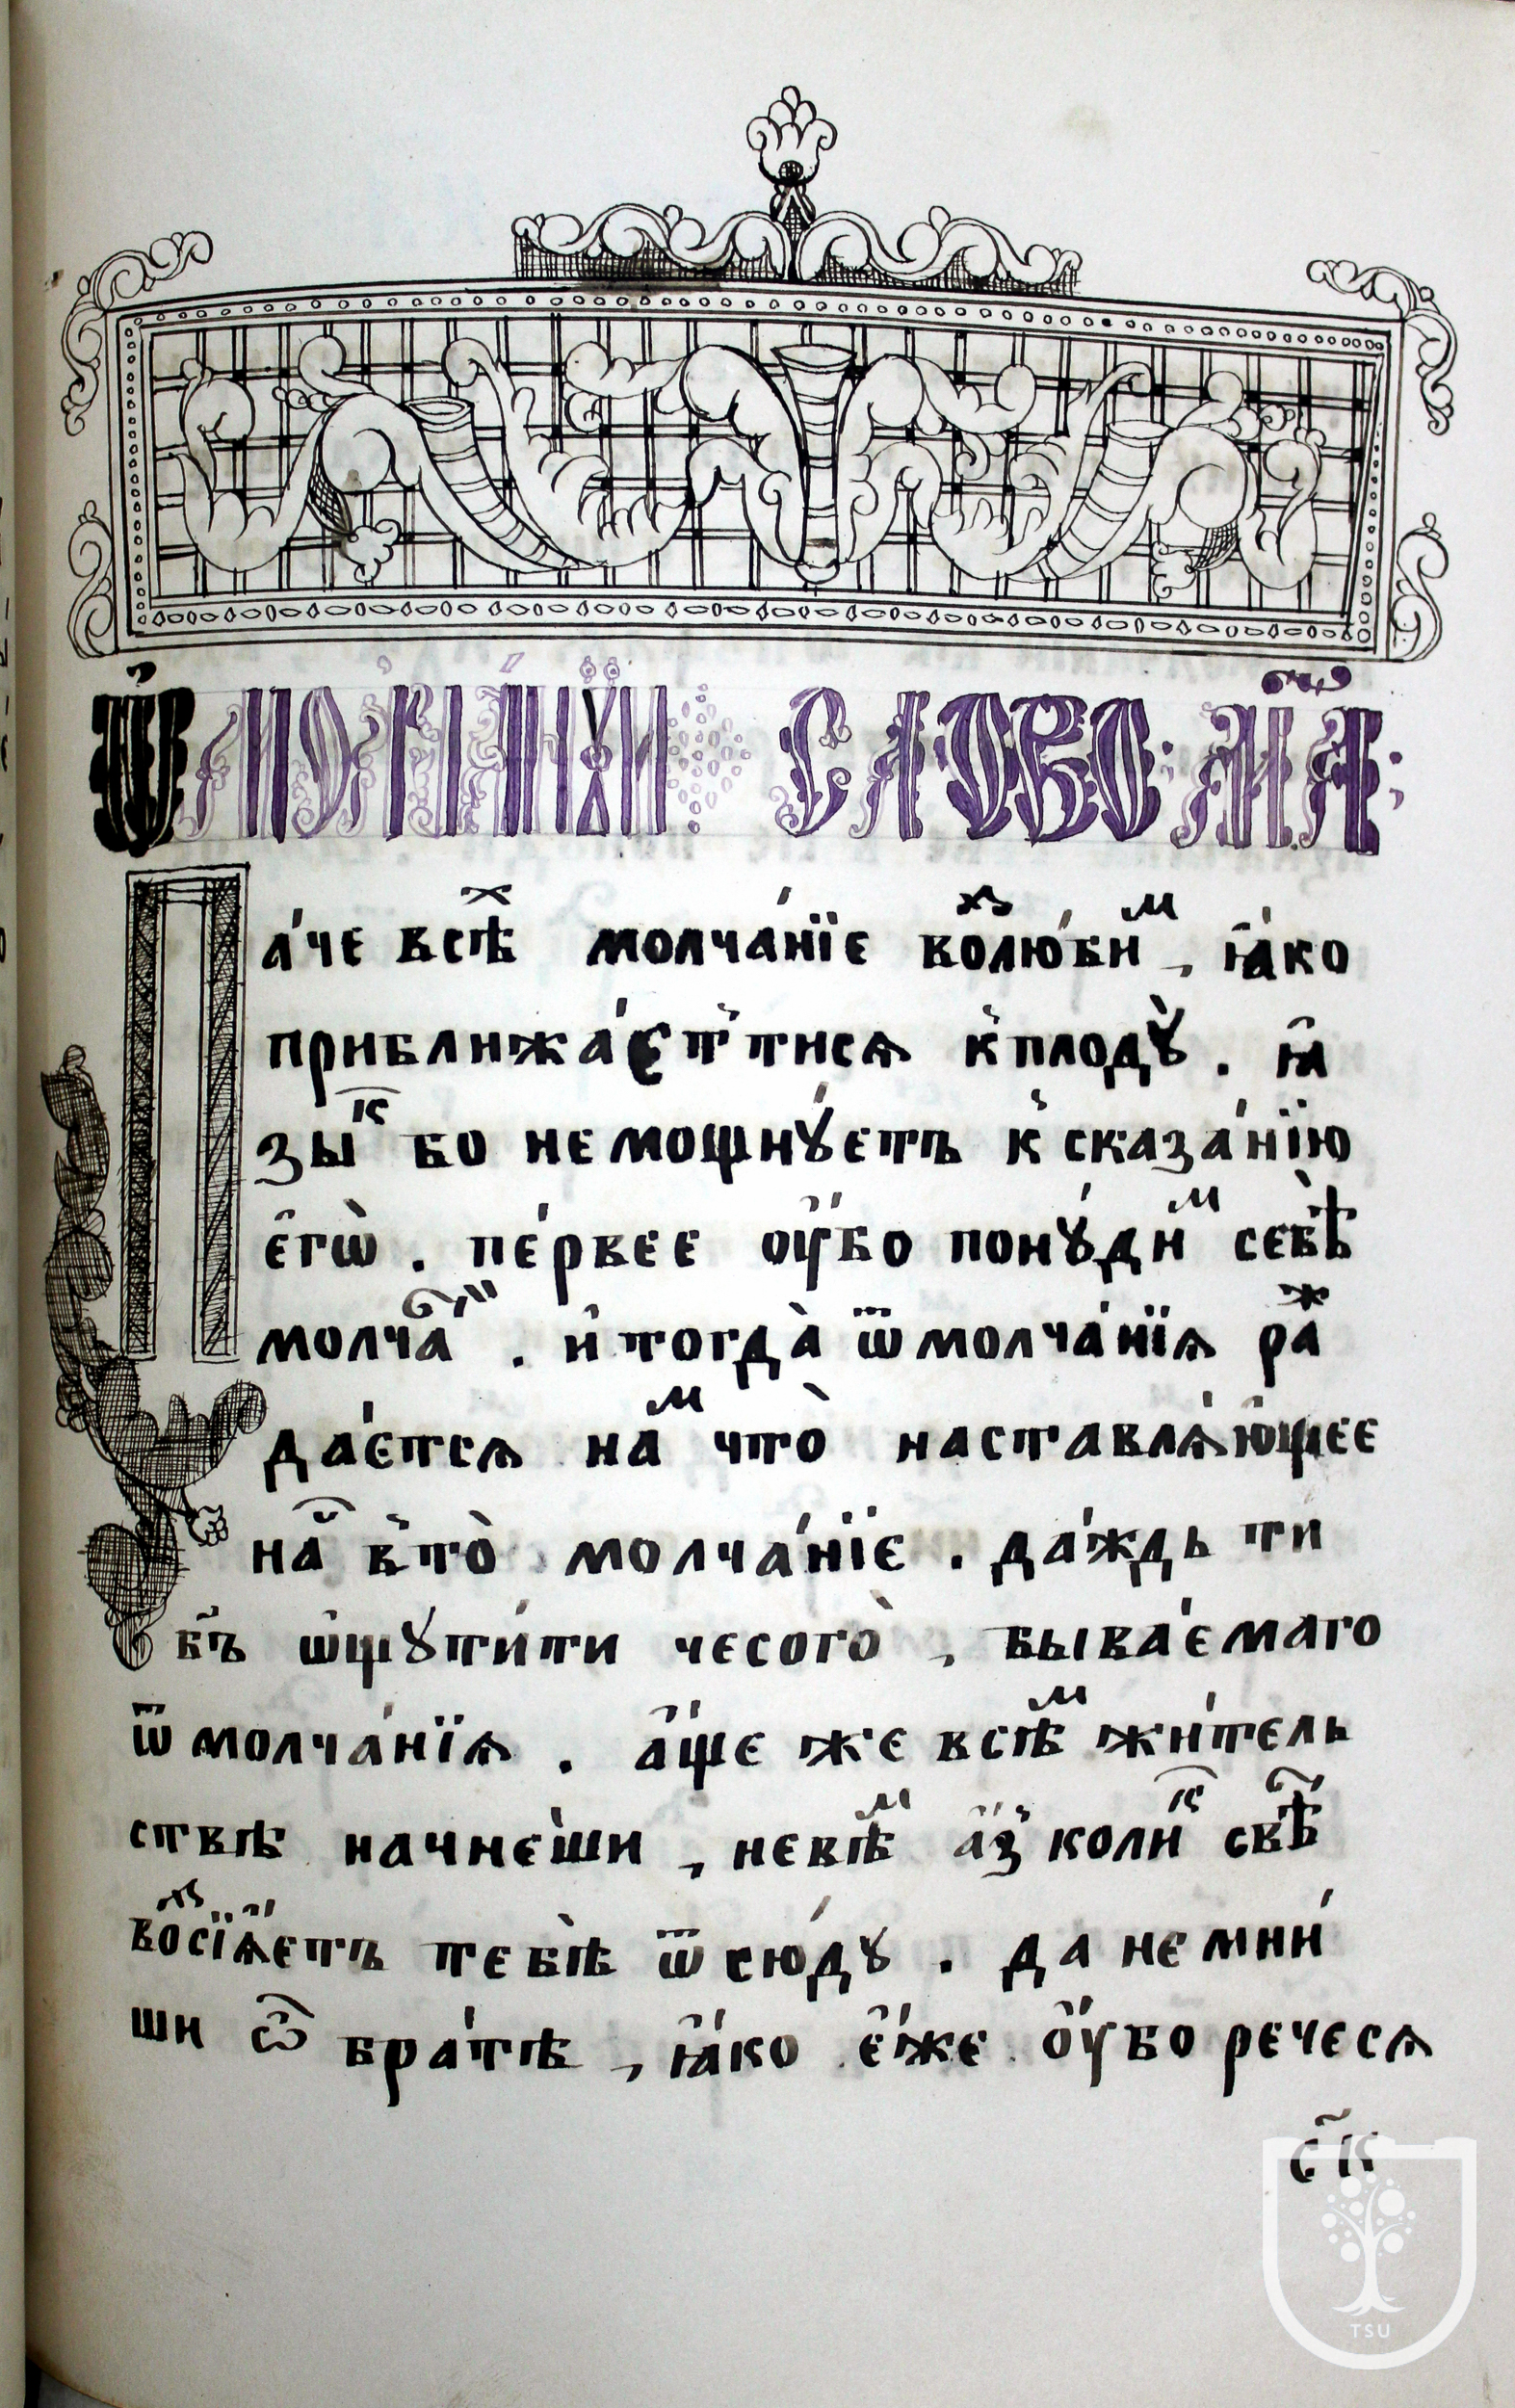 Ѿ молчанїи слово м҃а
Па́че всѣⷯ молча́нїе воⷥлю́биⷨ, ꙗ҆́ко
приближа́етъ тися к плодꙋ̀. ꙗ҆
зыⷦ бо немощнꙋетъ к сказа́нїю
є҆гѡ̀. пе́рвее ᲂу҆́бо понꙋ́диⷨ себѐ
молчаⷮ. и҆ тогда̀ ѿ молча́нїя раⷤ
да́етсѧ наⷨ что̀ наставлѧ́ющее
наⷭ в то̀ молча́нїе. да́ждь ти
бг҃ъ ѡ҆щꙋти́ти чесого̀, быва́емаго
ѿ молча́нїѧ. а҆́ще же всѣⷨ жи́тель
ствѣ начне́ши, невѣⷨ а҆́з колиⷦ свѣⷮ
воⷥсїѧ́етъ тебѣ̀ ѿсю́дꙋ. да не мни́
ши ѽ бра́тѣ, ꙗ҆́ко є҆́же ᲂу҆́бо речесѧ
TSU